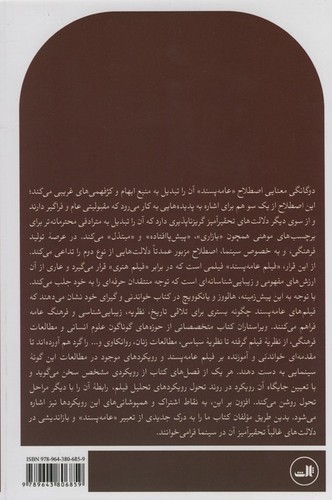 دوگانگی معنایی اصطلاح «عامه‌پسند» آن را تبدیل به منبع ابهام و کژفهمی‌های غریبی می‌کند؛
این اصطلاح از یک سو هم برای اشاره به پدیده‌هایی به کار می‌رود که مقبولیتی عام و فراگیر دارند
و از سوی دیگر دلالت‌های تحقیرآمیز گریزناپذیری دارد که آن را تبدیل به مترادفی محترمانه‌تر برای
برچسب‌های موهنی همچون «بازاری»، «پیش‌پاافتاده» و «مبتذل» می‌کند. در عرصهٔ تولید
فرهنگی، و به خصوص سینما، اصطلاح مزبور عمدتاً دلالت‌هایی از نوع دوم را تداعی می‌کند.
از این قرار، «فیلم عامه‌پسند» فیلمی است که در برابر «فیلم هنری» قرار می‌گیرد و عاری از آن
ارزش‌های مفهومی و زیبایی‌شناسانه‌ای است که توجه منتقدان حرفه‌ای را به خود جلب می‌کند.
با توجه به این پیش‌زمینه، هالوز و یانکوویچ در کتاب خواندنی و گیرای خود نشان می‌دهند که
فیلم‌های عامه‌پسند چگونه بستری برای تلاقی تاریخ، نظریه، زیبایی‌شناسی و فرهنگ عامه
فراهم می‌کنند. ویراستاران کتاب متخصصانی از حوزه‌های گوناگون علوم انسانی و مطالعات
فرهنگی، از نظریهٔ فیلم گرفته تا نظریهٔ سیاسی، مطالعات زنان، روانکاوی و... را گرد هم آورده‌اند تا
مقدمه‌ای خواندنی و آموزنده بر فیلم عامه‌پسند و رویکردهای موجود در مطالعات این گونهٔ
سینمایی به دست دهند. هر یک از فصل‌های کتاب از رویکردی مشخص سخن می‌گوید و
با تعیین جایگاه آن رویکرد در روند تحول رویکردهای تحلیل فیلم، رابطهٔ آن را با دیگر مراحل
تحول روشن می‌کند. افزون بر این، به نقاط اشتراک و همپوشانی‌های این رویکردها نیز اشاره
می‌شود. بدین طریق مؤلفان کتاب ما را به درک جدیدی از تعبیر «عامه‌پسند» و بازاندیشی در
دلالت‌های غالباً تحقیرآمیز آن در سینما فرامی‌خوانند.
ISBN 978-964-380-685-9
9 789643 806859
ثالث